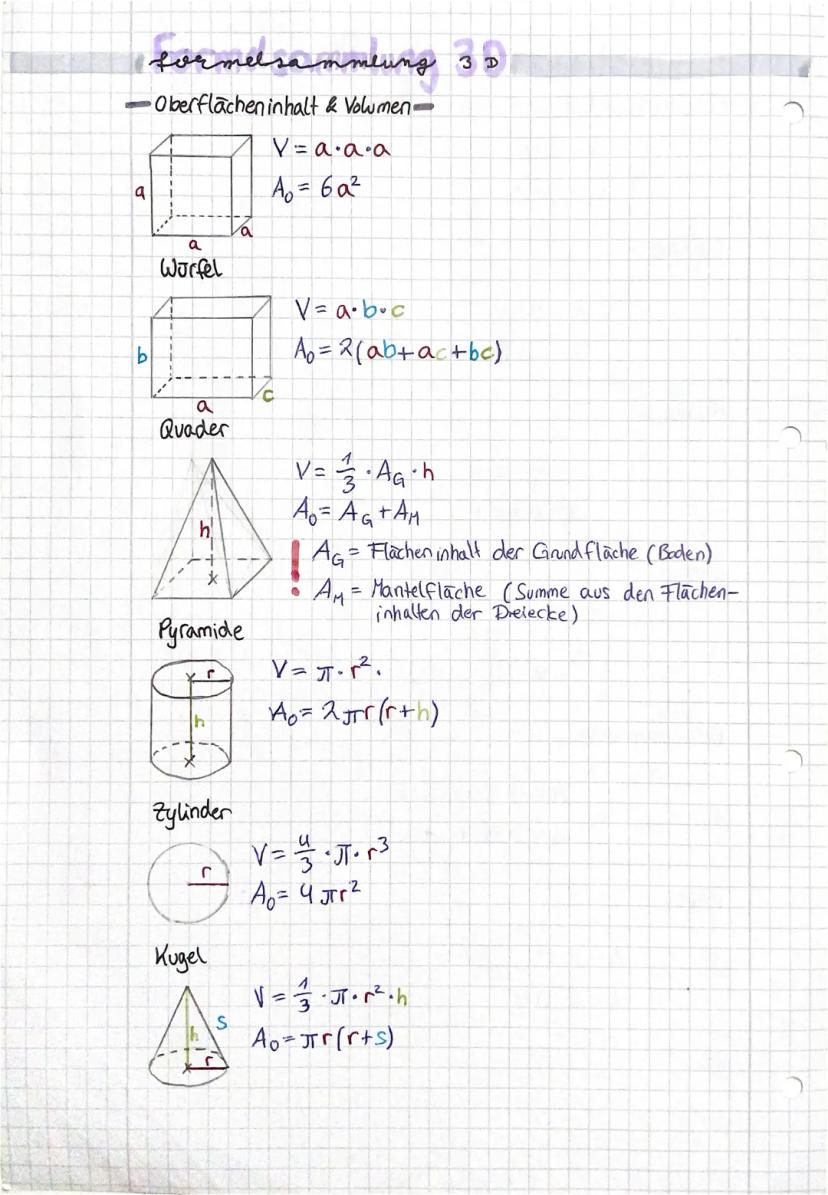 Formelsammlung 3D
Oberflächeninhalt & Volumen
V = a·a·a
A₀ = 6a²
a
a
a
Würfel
V = a·b·c
A₀ = 2(ab+ac+bc)
b
c
a
Quader
V = 1/3 · A_G · h
A₀ = A_G + A_M
h
! A_G = Flächeninhalt der Grundfläche (Boden)
A_M = Mantelfläche (Summe aus den Flächen-
inhalten der Dreiecke)
Pyramide
r
V = π · r² ·
A₀ = 2πr(r+h)
h
Zylinder
V = 4/3 · π · r³
r
A₀ = 4πr²
Kugel
V = 1/3 · π · r² · h
s
A₀ = πr(r+s)
h
r